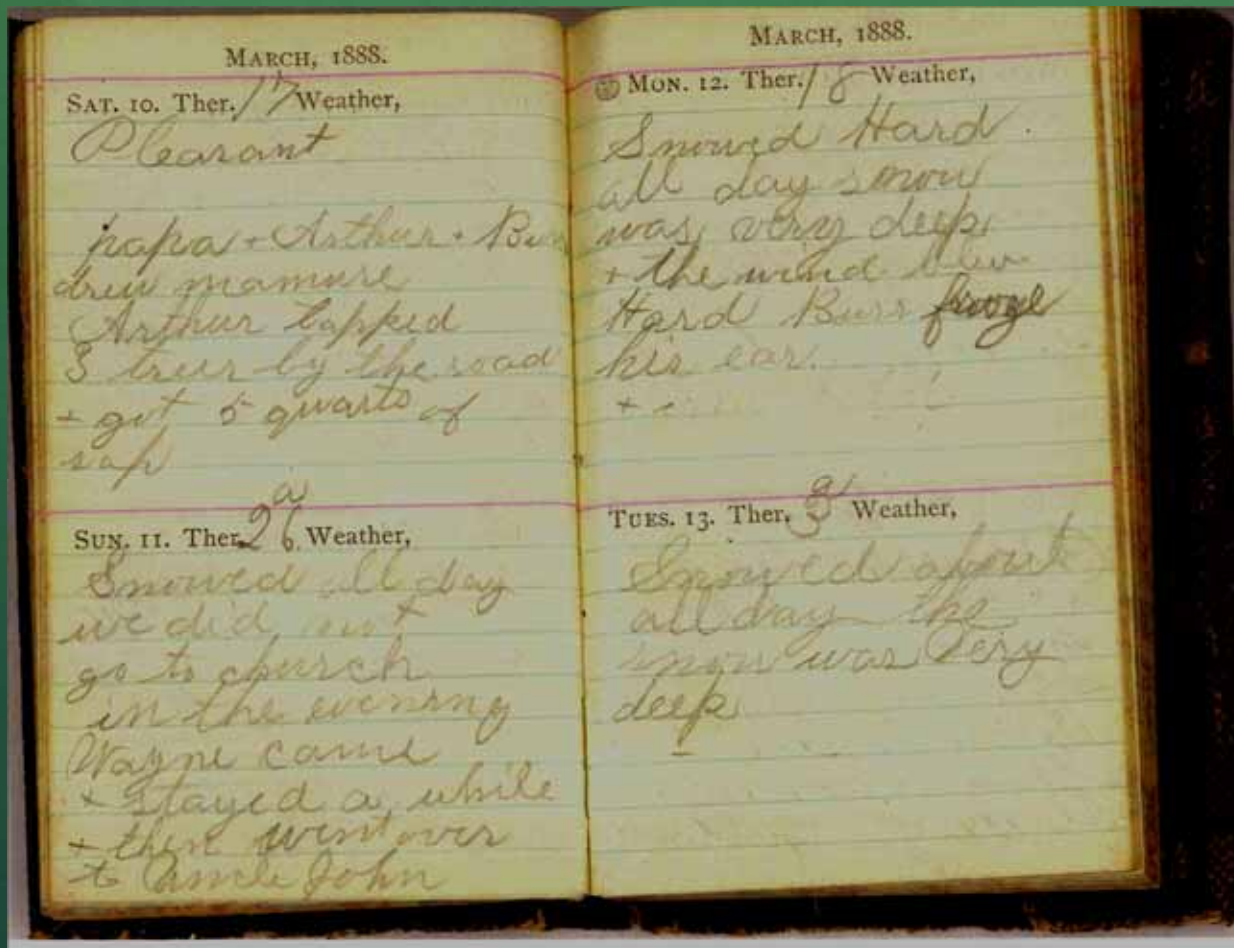 MARCH, 1888.
SAT. 10. Ther. 17 Weather,
Pleasant
papa + Arthur + Burr
drew manure
Arthur tapped
3 trees by the road
+ got 5 quarts of
sap
SUN. 11. Ther. 26 Weather,
Snowed all day
we did not
go to church
in the evening
Wayne came
+ stayed a while
+ then went over
to Uncle John
MARCH, 1888.
MON. 12. Ther. 18 Weather,
Snowed Hard
all day snow
was very deep
+ the wind blew
Hard Burr froze
his ear.
+
TUES. 13. Ther. Weather,
Snowed about
all day the
snow was very
deep